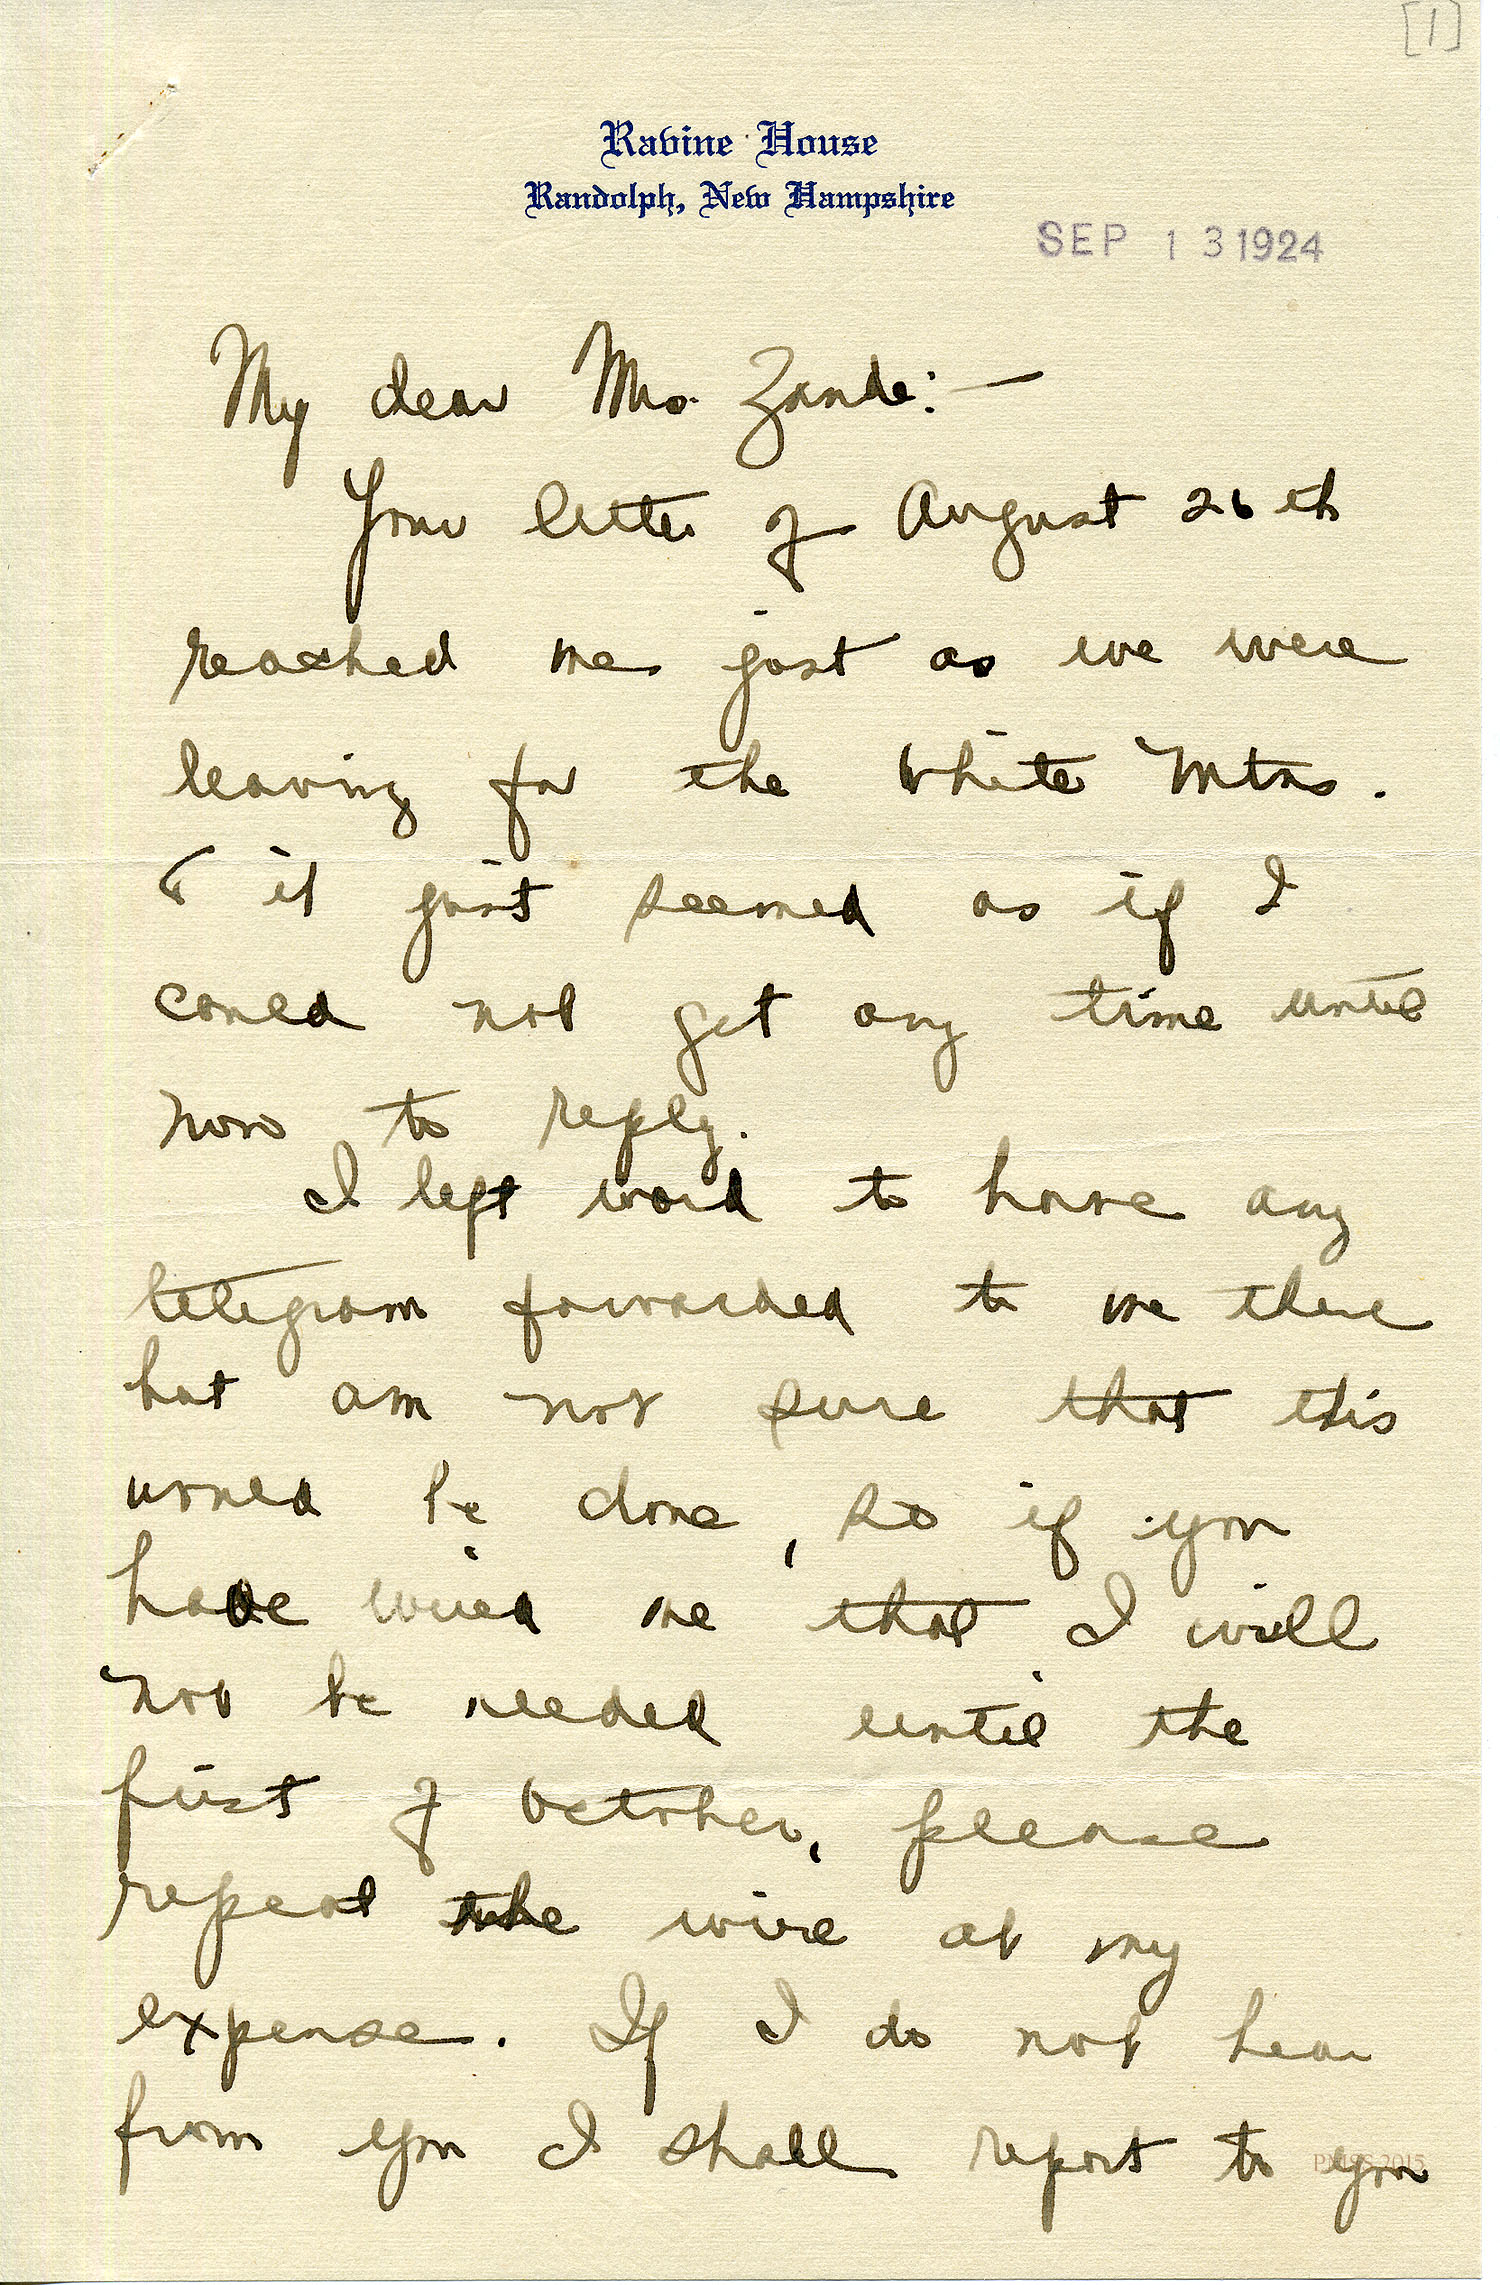 [1]
Ravine House
Randolph, New Hampshire
SEP 13 1924
My dear Mrs. Zande:—
Your letter of August 26th
reached me just as we were
leaving for the White Mtns.
& it just seemed as if I
could not get any time until
now to reply.
I left word to have any
telegram forwarded to me there
but am not sure that this
would be done, so if you
have wired me that I will
not be needed until the
first of October, please
repeat the wire at my
expense. If I do not hear
from you I shall report to you
PMSS 2015